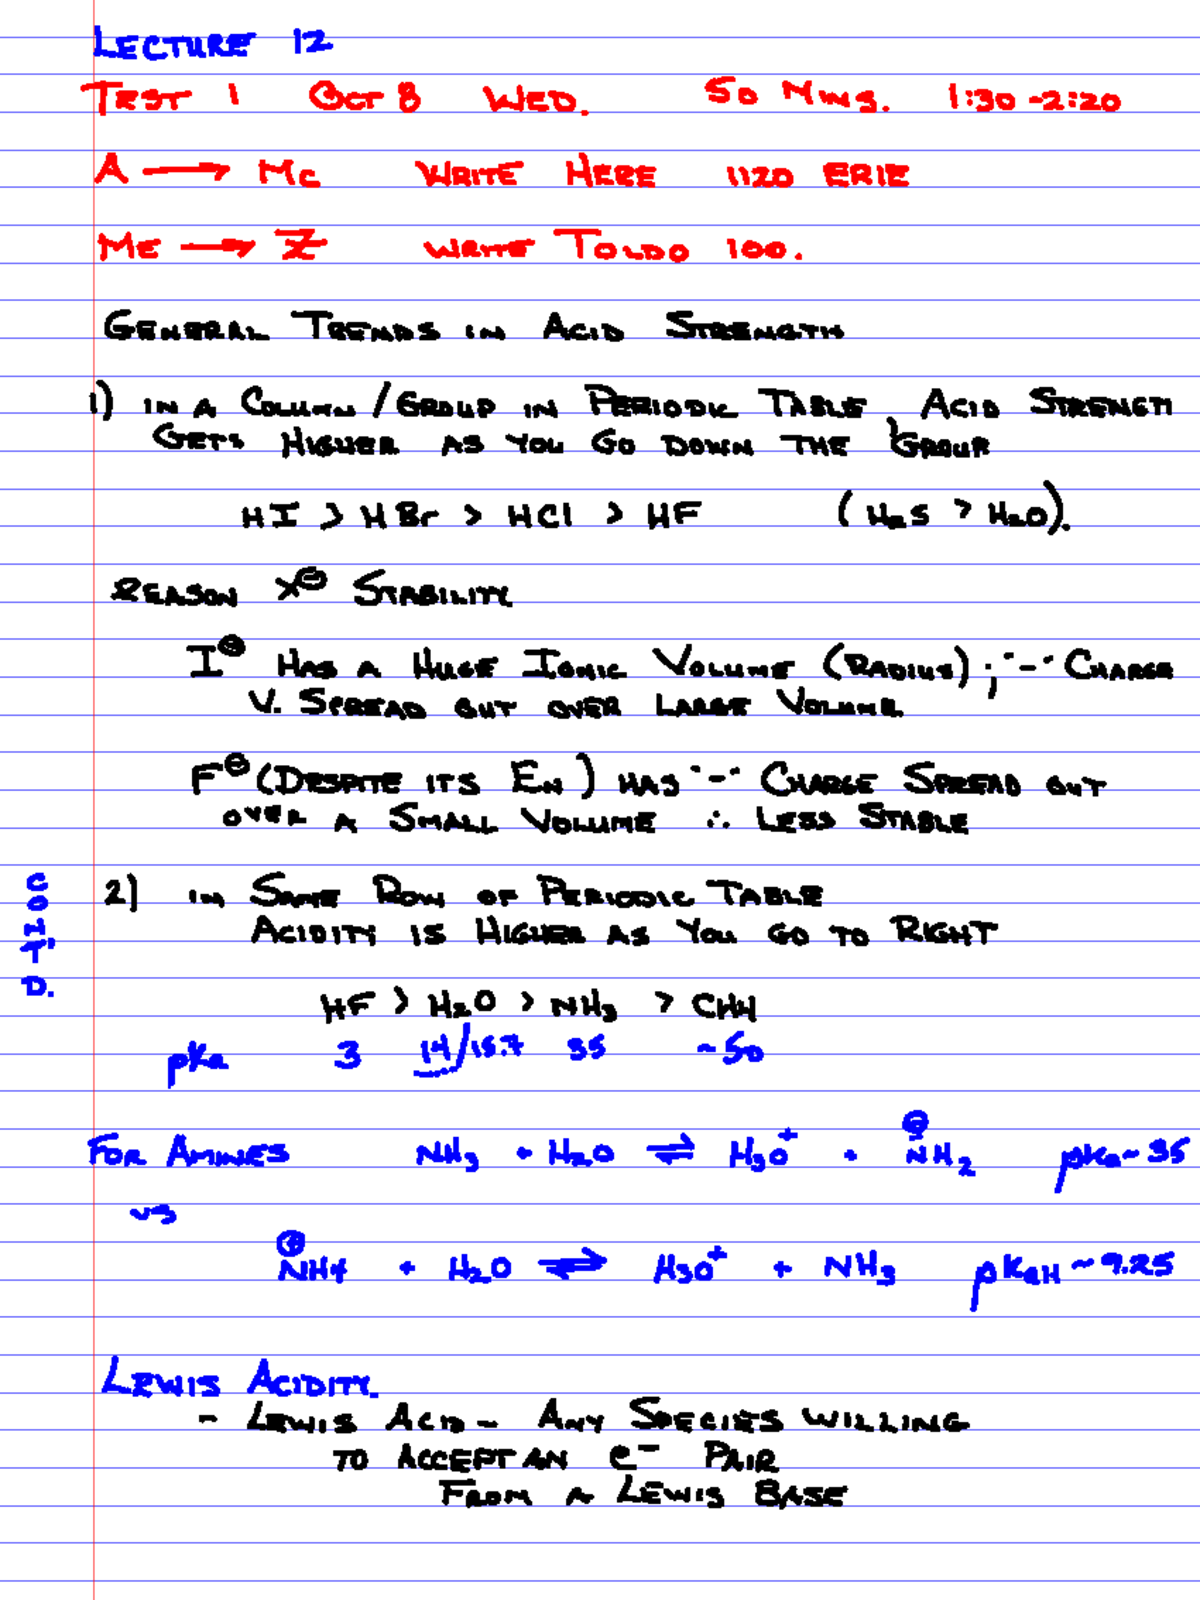 LECTURE 12
TEST 1 OCT 8 WED. 50 MINS. 1:30-2:20
A → Mc WRITE HERE 1120 ERIE
ME → Z WRITE TOLDO 100.
GENERAL TRENDS IN ACID STRENGTH
1) IN A COLUMN/GROUP IN PERIODIC TABLE, ACID STRENGTH
GETS HIGHER AS YOU GO DOWN THE GROUP
HI > HBr > HCl > HF (H2S > H2O).
REASON X⊖ STABILITY
I⊖ HAS A HUGE IONIC VOLUME (RADIUS); "-" CHARGE
V. SPREAD OUT OVER LARGE VOLUME
F⊖ (DESPITE ITS EN) HAS "-" CHARGE SPREAD OUT
OVER A SMALL VOLUME ∴ LESS STABLE
CONT'D.
2) IN SAME ROW OF PERIODIC TABLE
ACIDITY IS HIGHER AS YOU GO TO RIGHT
HF > H2O > NH3 > CH4
pKa 3 14/15.7 35 ~50
FOR AMINES NH3 + H2O ⇌ H3O+ + ⊖NH2 pKa ~ 35
vs
⊕NH4 + H2O ⇌ H3O+ + NH3 pKaH ~ 9.25
LEWIS ACIDITY.
- LEWIS ACID - ANY SPECIES WILLING
TO ACCEPT AN e- PAIR
FROM A LEWIS BASE